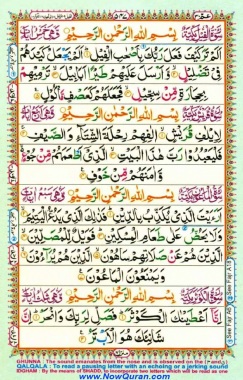 بِسْمِ اللّٰهِ الرَّحْمٰنِ الرَّحِيْمِ
اَلَمْ تَرَ كَيْفَ فَعَلَ رَبُّكَ بِاَصْحٰبِ الْفِيْلِ اَلَمْ يَجْعَلْ كَيْدَهُمْ
فِيْ تَضْلِيْلٍ وَّاَرْسَلَ عَلَيْهِمْ طَيْرًا اَبَابِيْلَ تَرْمِيْهِمْ
بِحِجَارَةٍ مِّنْ سِجِّيْلٍ فَجَعَلَهُمْ كَعَصْفٍ مَّاْكُوْلٍ
بِسْمِ اللّٰهِ الرَّحْمٰنِ الرَّحِيْمِ
لِاِيْلٰفِ قُرَيْشٍ اٖلٰفِهِمْ رِحْلَةَ الشِّتَآءِ وَالصَّيْفِ
فَلْيَعْبُدُوْا رَبَّ هٰذَا الْبَيْتِ الَّذِيْٓ اَطْعَمَهُمْ مِّنْ جُوْعٍ
وَّاٰمَنَهُمْ مِّنْ خَوْفٍ
بِسْمِ اللّٰهِ الرَّحْمٰنِ الرَّحِيْمِ
اَرَءَيْتَ الَّذِيْ يُكَذِّبُ بِالدِّيْنِ فَذٰلِكَ الَّذِيْ يَدُعُّ الْيَتِيْمَ
وَلَا يَحُضُّ عَلٰى طَعَامِ الْمِسْكِيْنِ فَوَيْلٌ لِّلْمُصَلِّيْنَ
الَّذِيْنَ هُمْ عَنْ صَلَاتِهِمْ سَاهُوْنَ الَّذِيْنَ هُمْ يُرَآءُوْنَ
وَيَمْنَعُوْنَ الْمَاعُوْنَ
بِسْمِ اللّٰهِ الرَّحْمٰنِ الرَّحِيْمِ
اِنَّآ اَعْطَيْنٰكَ الْكَوْثَرَ فَصَلِّ لِرَبِّكَ وَانْحَرْ اِنَّ
شَانِئَكَ هُوَ الْاَبْتَرُ
GHUNNA : The sound emanates from the nose and is observed on the
QALQALA : To read a pausing letter with an echoing or a jerking sound
IDGHAM : By the means of SHADD, to incorporate two letters which will be read as one
www.NowQuran.com